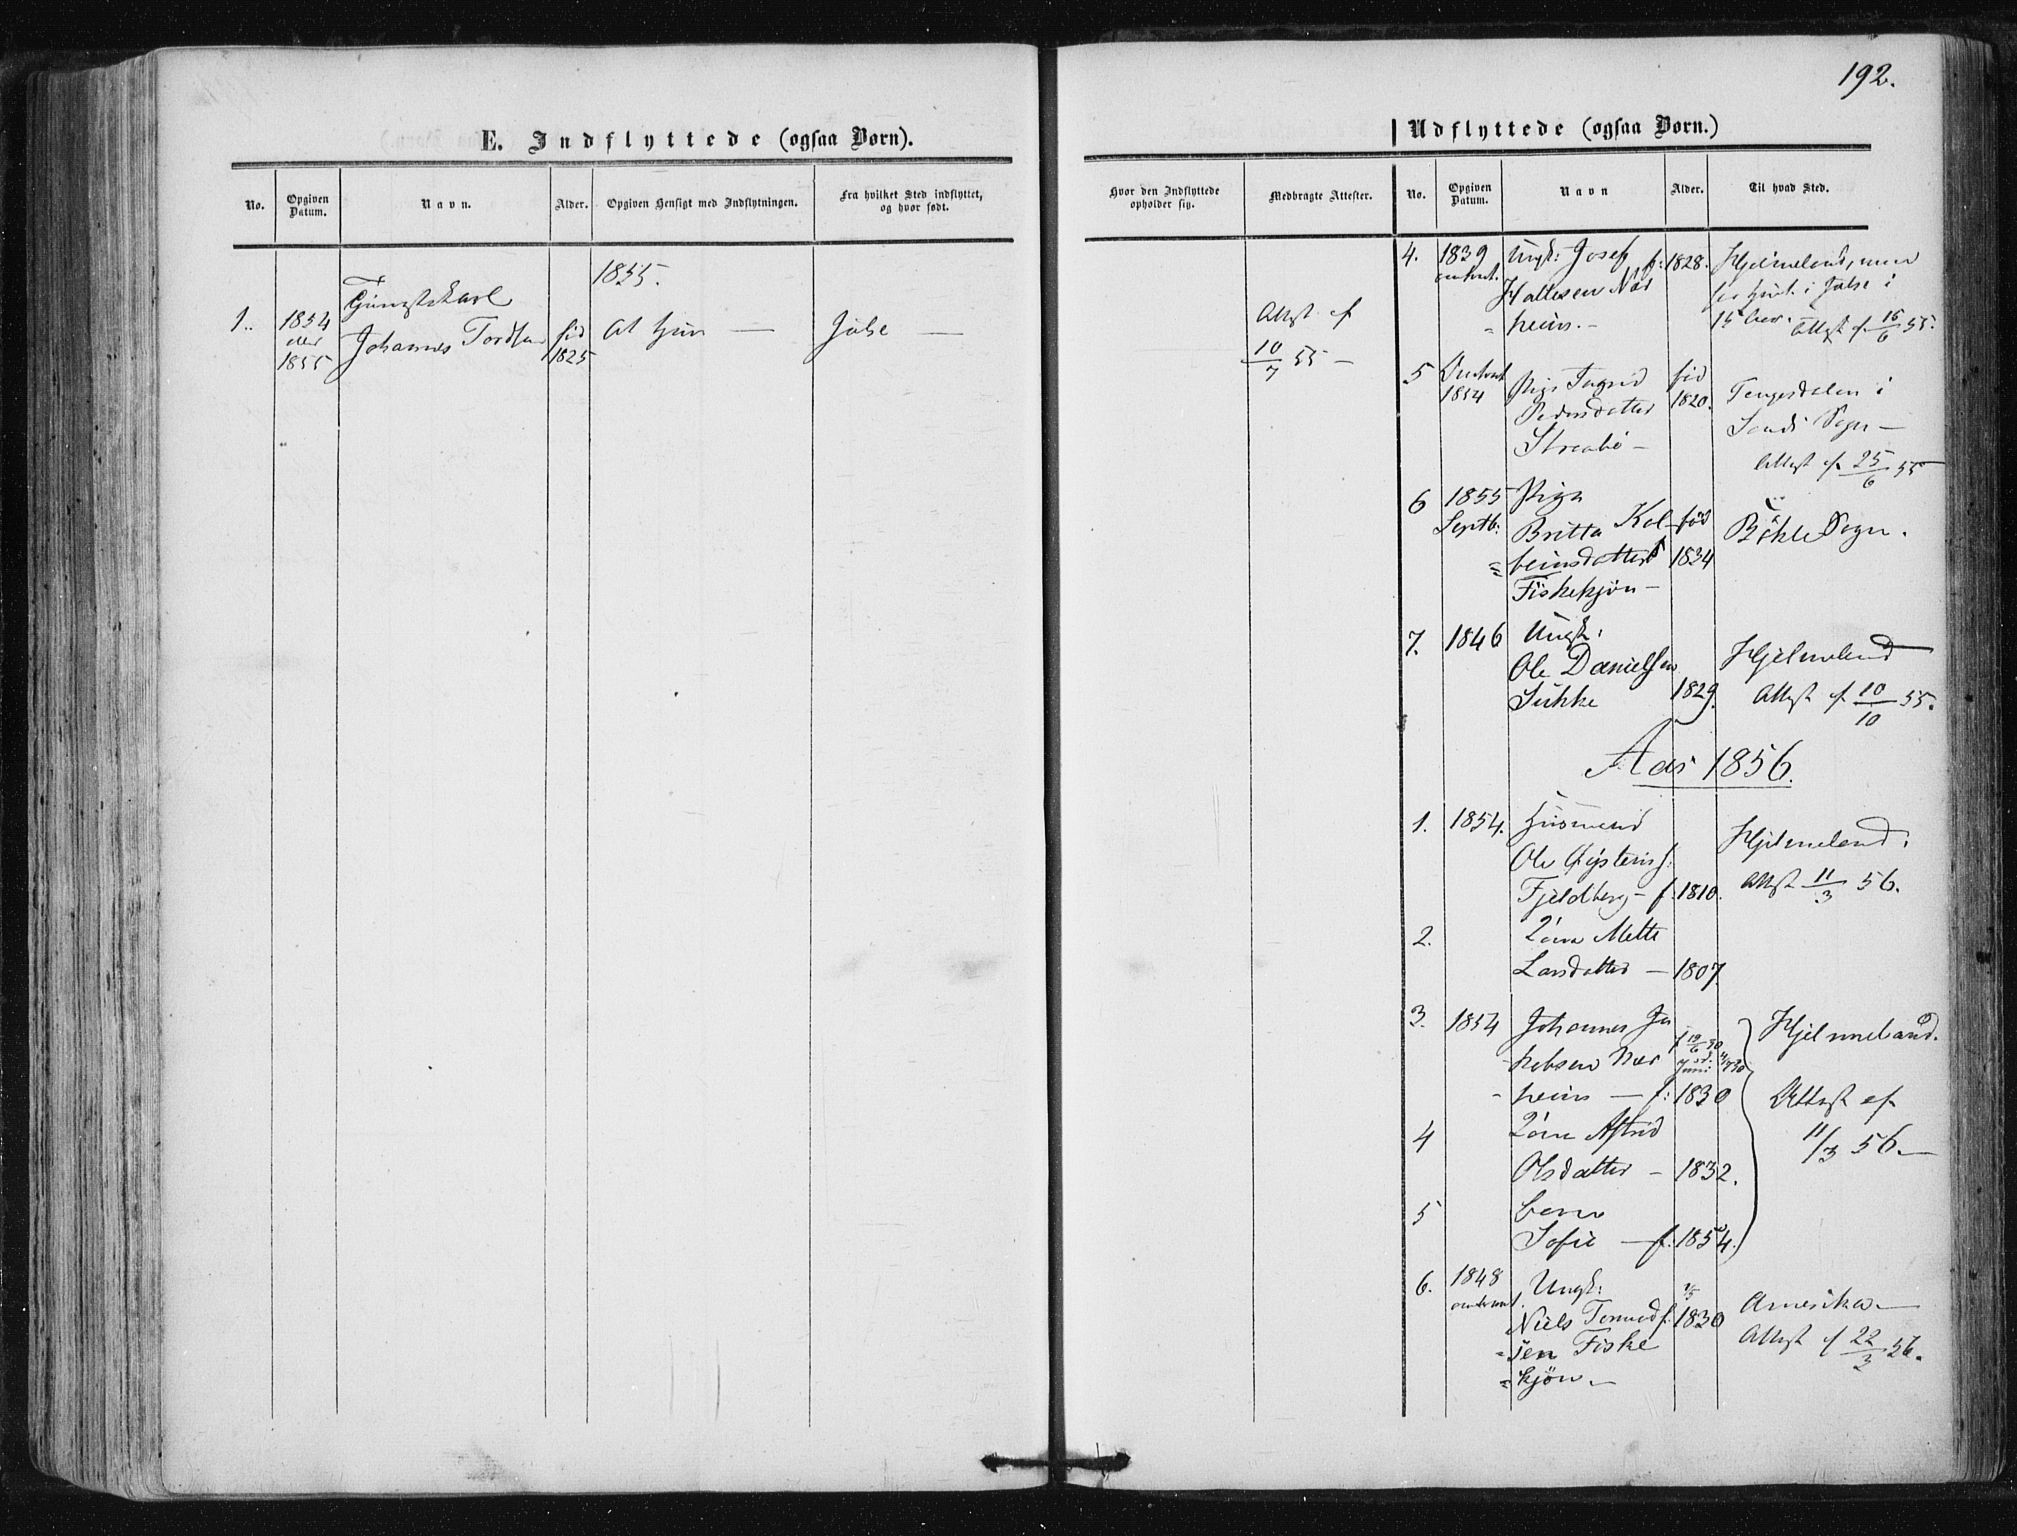 192.
E. Indflyttede (ogsaa Børn).
No.
Opgiven Datum.
Navn.
Alder.
Opgiven Hensigt med Indflytningen.
Fra hvilket Sted indflyttet,
og hvor født.
1855.
1.
1854
eller
1855
Tjenestekarl
Johannes Tordsen
fød
1825
At tjene —
Jølse —
Udflyttede (ogsaa Børn.)
Hvor den Indflyttede
opholder sig.
Medbragte Attester.
No.
Opgiven
Datum.
Navn
Alder.
Til hvad Sted.
Attest af
10/7 55 —
4.
1839
omtrent.
Ungk: Josef
Hallesen Nær
heim. —
f: 1828.
Hjelmeland, men
i Jølse i
15 Aar. Attest f. 16/6 55.
5
Omtrent
1854
Pige Ingrid
Pedersdatter
Straabø —
fød
1820.
Tengesdalen i
Sands Sogn —
Attest af 25/6 55
6
1855
Septb.
Pige
Britta Kol
beinsdatter
Fiskekjøn —
fød
1834
Bökle Sogn.
7.
1846
Ungk.
Ole Danielsen
Sukke
1829.
Hjelmeland
Attest af 10/10 55.
Aar 1856.
1.
1854.
Husmand
Ole Øistens:
Fjeldberg — f. 1810.
Hjelmeland.
Attest 11/3 56.
2.
Kone Mette
Larsdatter — 1807.
3.
1854
Johannes Ja
kobsen Nær
heim — f: 1830
Hjelmeland.
Attest af
11/3 56. —
4
Kone Astrid
Olsdatter — 1832.
5
Barn
Sofie — f: 1854.
6.
1848
omtrent.
Ungk:
Niels Tormod
sen Fiske
kjøn. —
f. 1830
Amerika —
Attest af 22/3 56.